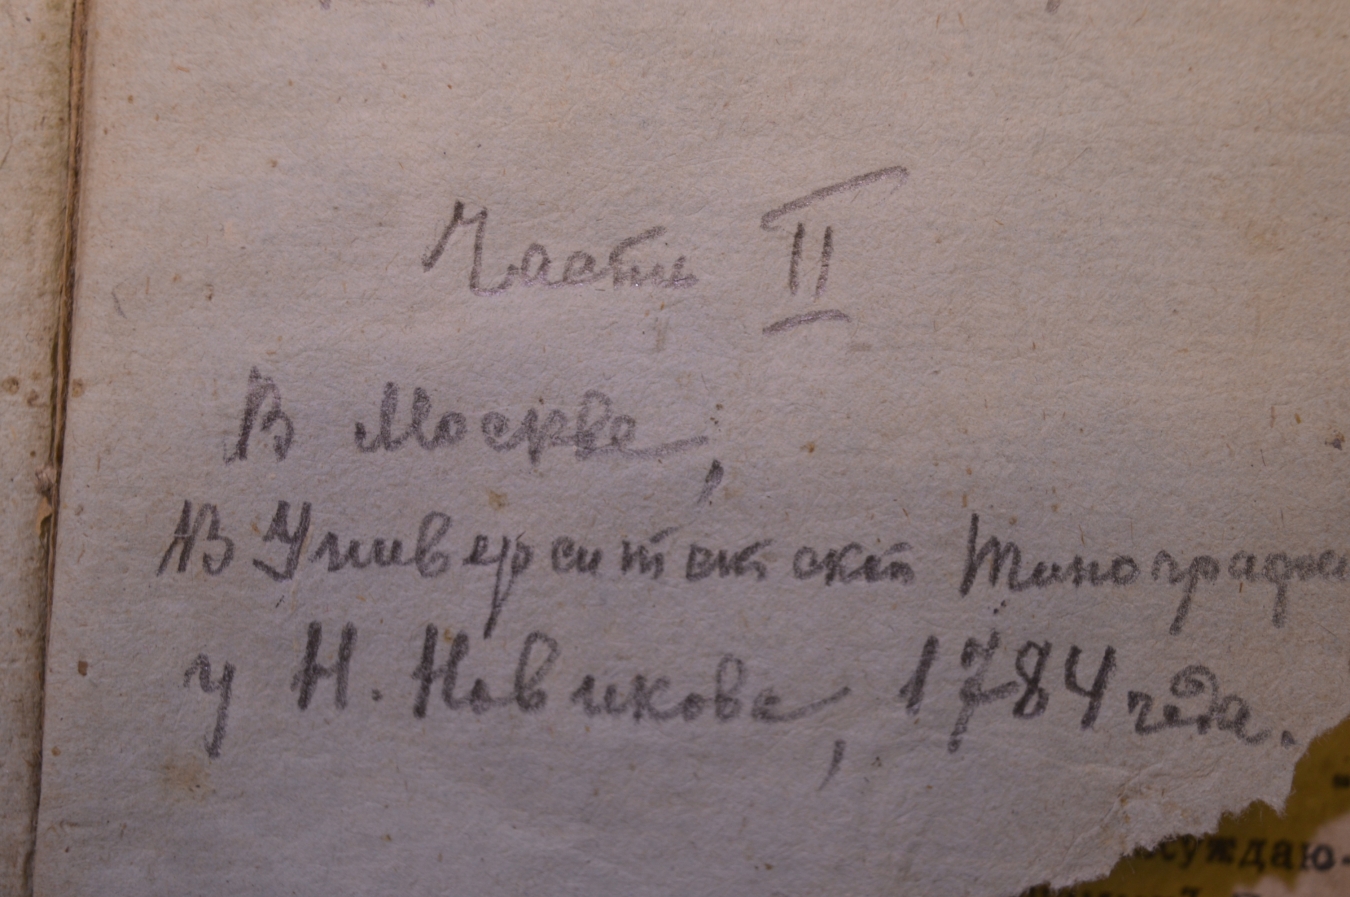 Часть II
В Москве,
В Университетской Типографи
у Н. Новикова, 1784 года.
суждаю-